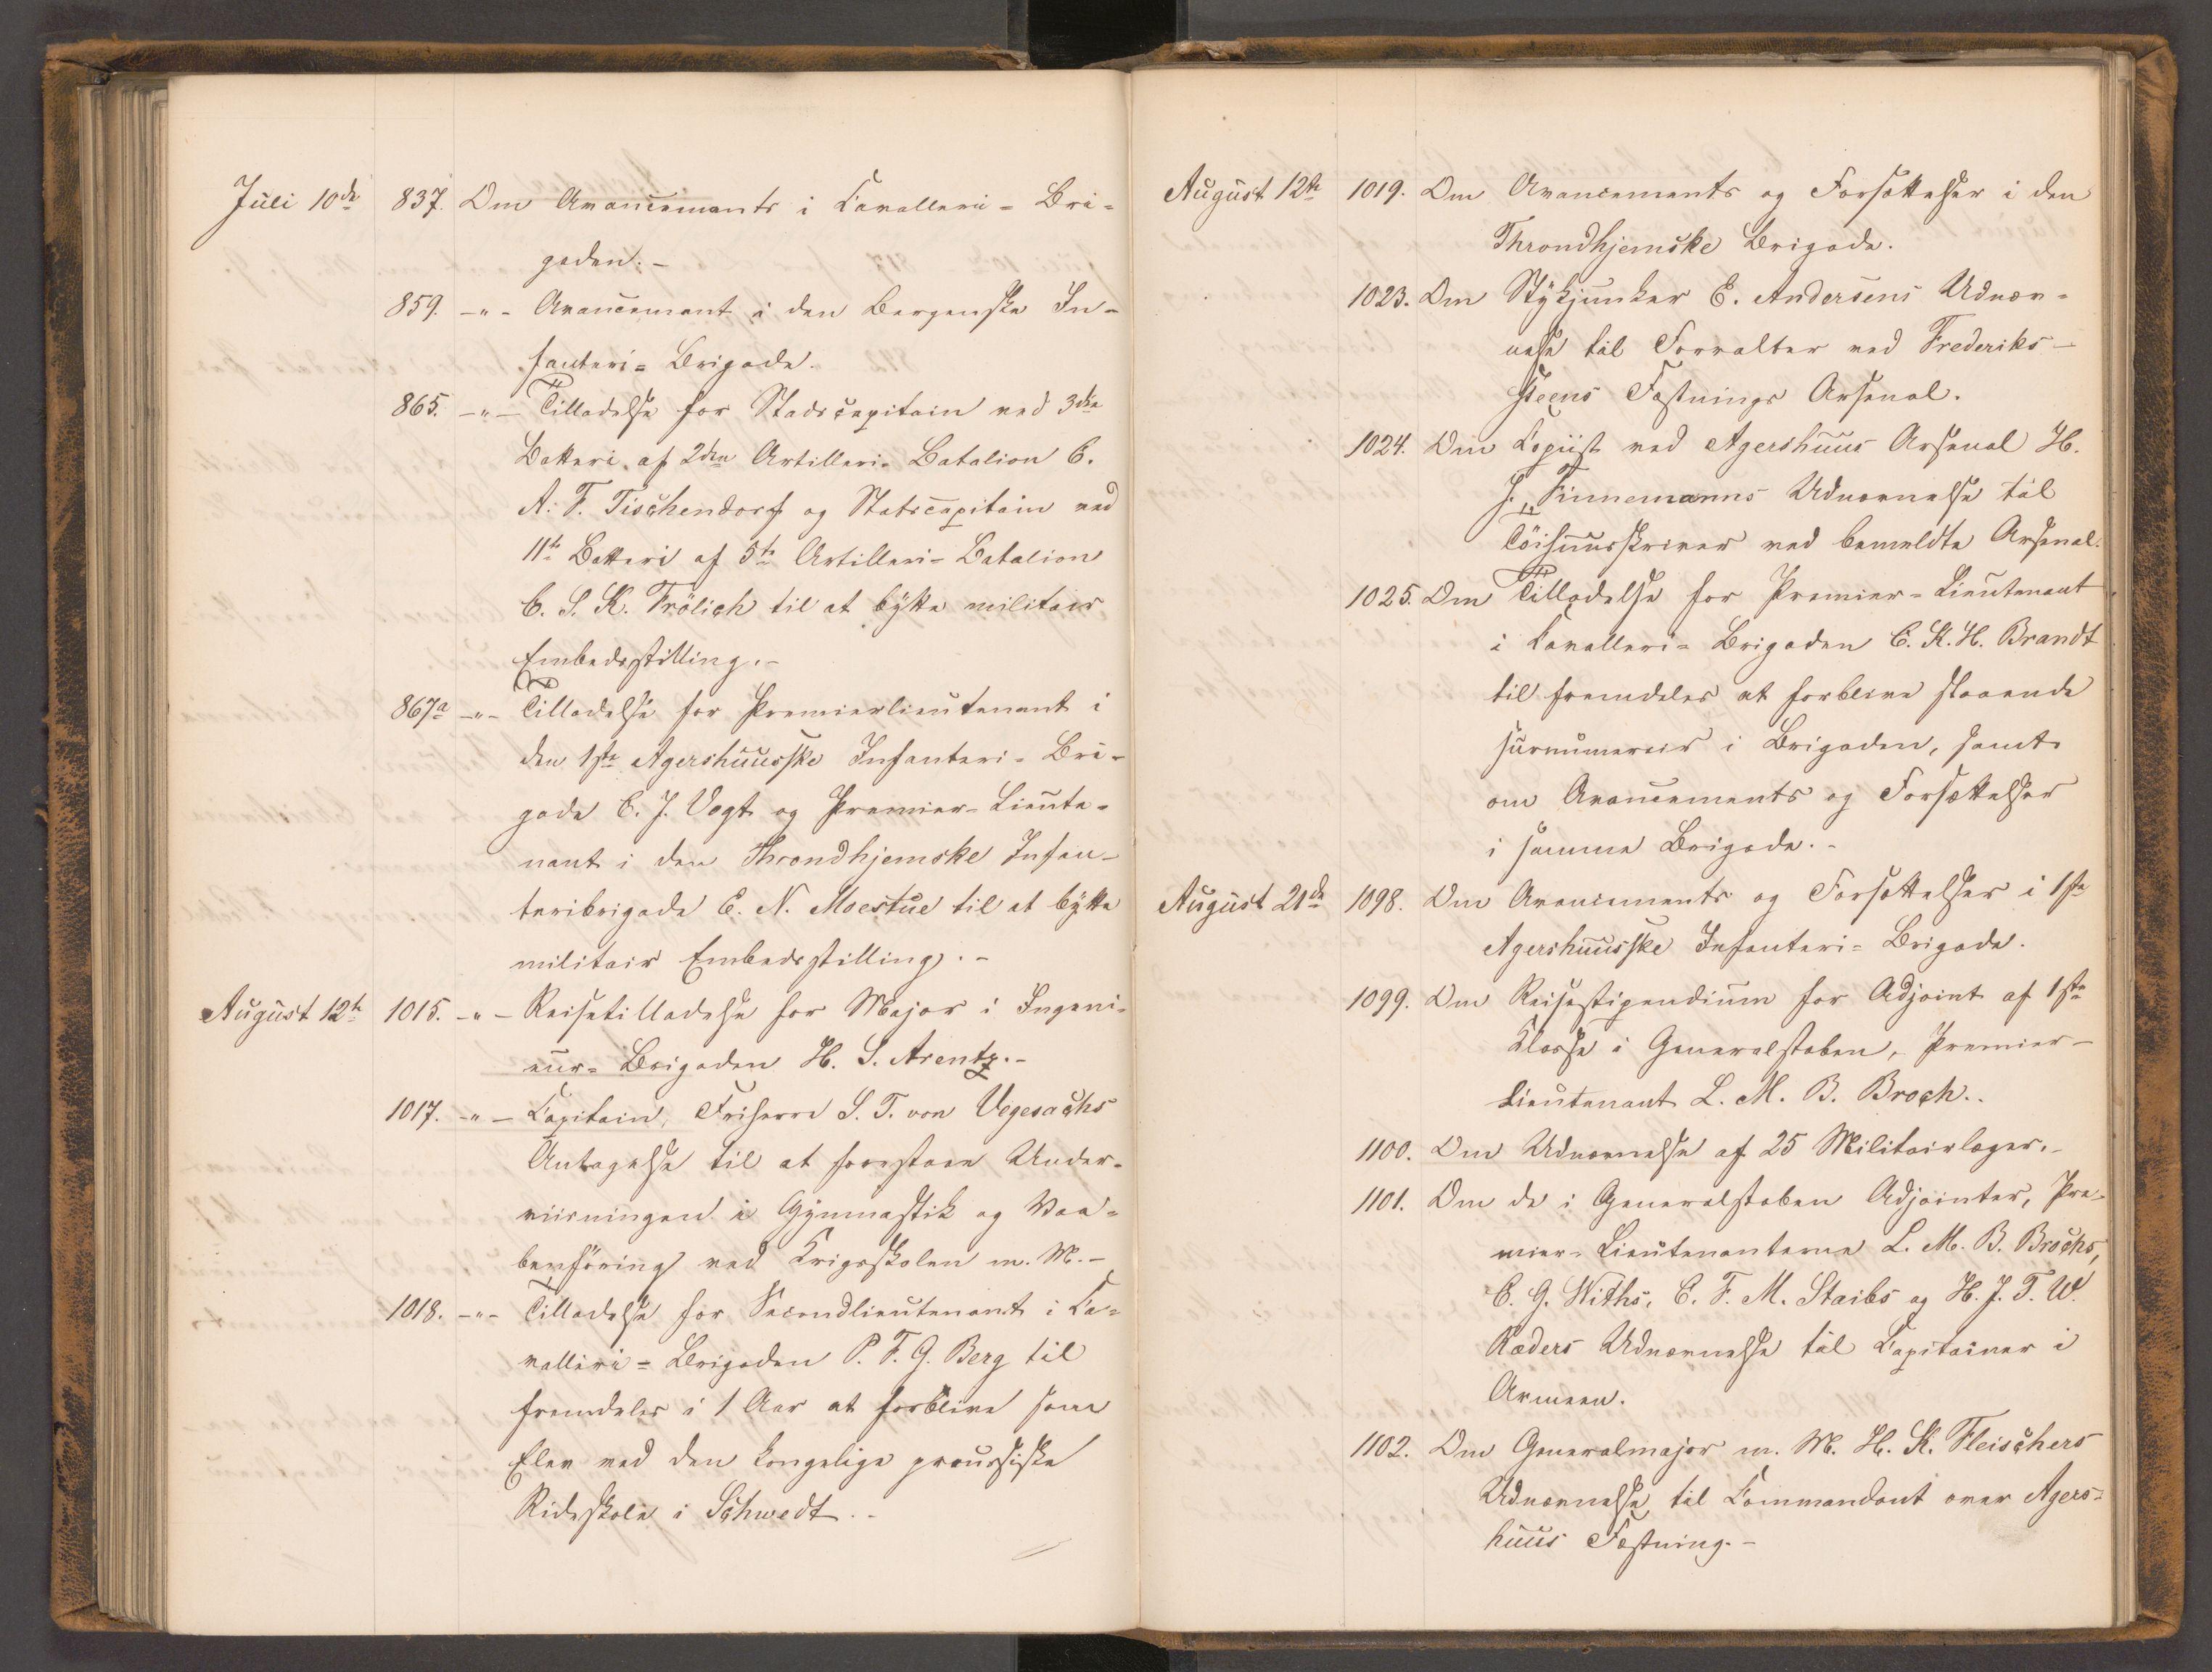 Juli 10de 837. Om Avancements i Cavalleri= Bri=
gaden.-
859. -"- Avancement i den Bergenske In=
fanteri= Brigade.
865. -"- Tilladelse for Stadscapitain ved 3die
Batteri af 2den Artilleri- Batalion C.
A. F. Tischendorf og Statscapitain ved
11te Batteri af 5te Artilleri- Batalion
C. S. K. Frölich til at bÿtte militair
Embedsstilling.-
867a -"- Tilladelse for Premierlieutenant i
den 1ste Agershuusske Infanteri- Bri=
gade C. J. Vogt og Premier- Lieute=
nant i den Throndhjemske Infan=
teribrigade E. N. Moestue til at bÿtte
militair Embedsstilling.-
August 12te 1015. -"- Reisetilladelse for Major i Ingeni=
eur= Brigaden H. S. Arentz.-
1017. -"- Capitain, Friherre S. T. von Vegesachs
Antagelse til at forestaae Under=
viisningen i Gÿmnastik og Vaa=
benföring ved Krigsskolen m. M.-
1018. -"- Tilladelse for Secondlieutenant i Ca=
valleri= Brigaden P. F. G. Berg til
fremdeles i 1 Aar at forblive som
Elev ved den kongelige preussiske
Rideskole i Schwedt.-
August 12te 1019. Om Avancements og Forsættelser i den
Throndhjemske Brigade.
1023. Om Stÿkjunker E. Andersens Udnæv=
nelse til Forvalter ved Frederiks-
steens Fæstnings Arsenal.
1024. Om Copiist ved Agershuus Arsenal H.
J. Finnemanns Udnævnelse til
Töihuusskriver ved bemeldte Arsenal.
1025. Om Tilladelse for Premier-Lieutenant
i Cavalleri= Brigaden C. K. H. Brandt
til fremdeles at forblive staaende
surnumerair i Brigaden, samt
om Avancements og Forsættelser
i samme Brigade.-
August 21de 1098. Om Avancements og Forsættelser i 1ste
Agershuusske Infanteri= Brigade.
1099. Om Reisestipendium for Adjoint af 1ste
Klasse i Generalstaben, Premier-
Lieutenant L. M. B. Broch.
1100. Om Udnævnelse af 25 Militairlæger.-
1101. Om de i Generalstaben Adjointer, Pre=
mier- Lieutenanterne L. M. B. Brochs,
C. G. Withs, C. F. M. Staibs og H. J. T. W.
Ræders Udnævnelse til Capitainer i
Armeen.
1102. Om Generalmajor m. M. H. K. Fleischers
Udnævnelse til Commandant over Agers=
huus Fæstning.-